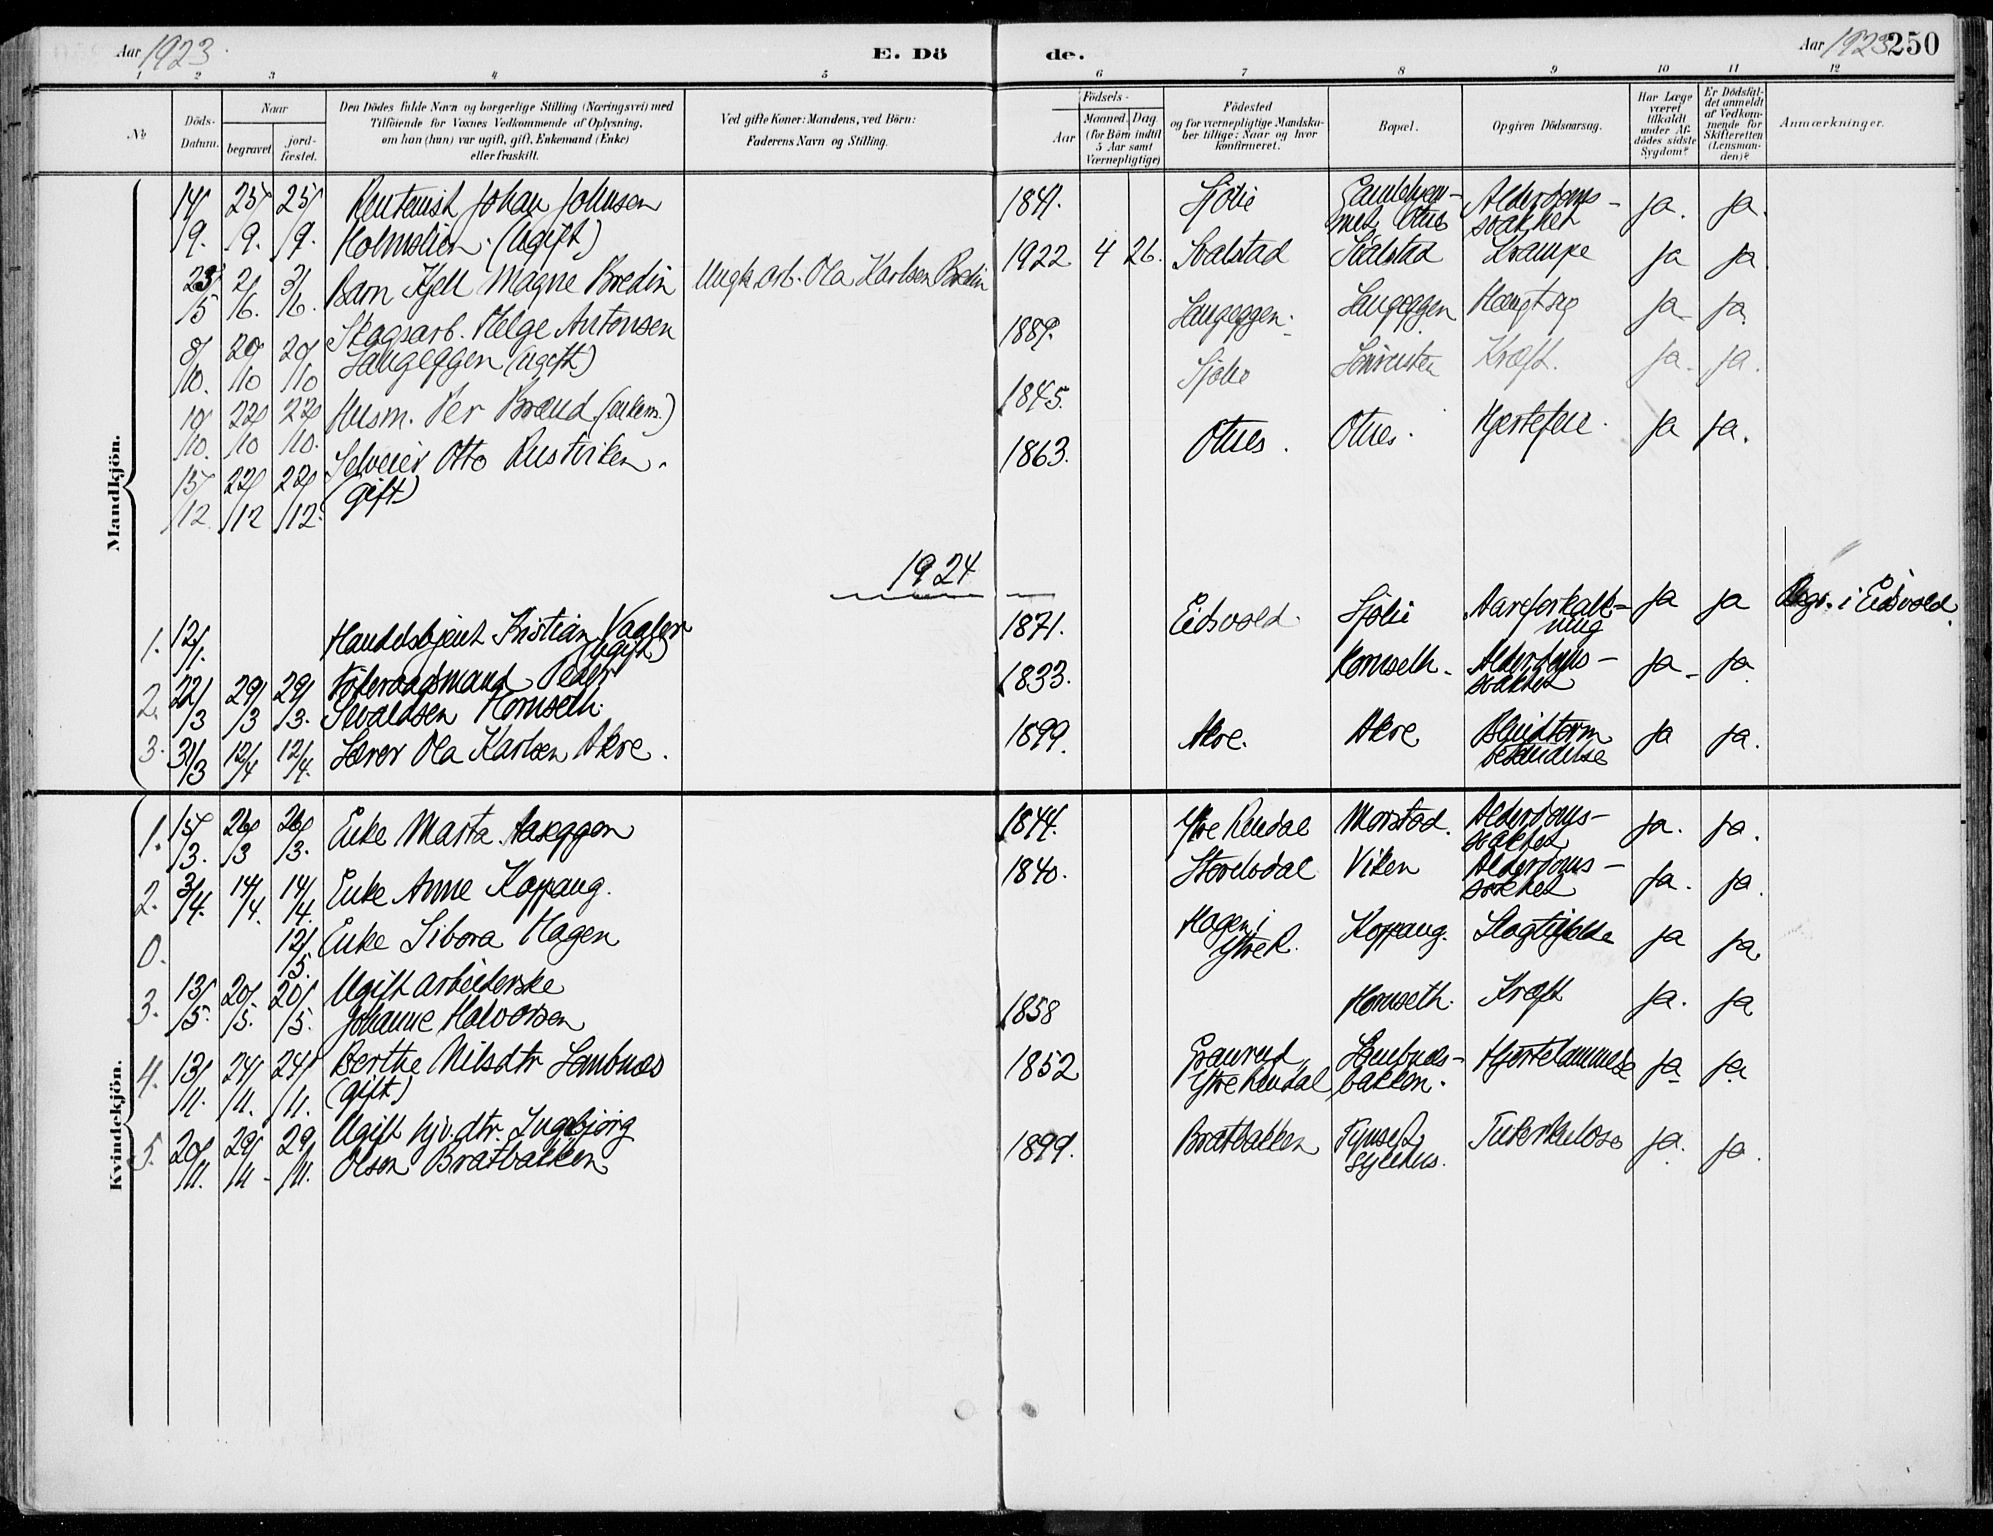 Aar 1923.
E. Döde.
Aar 1923 250
1 2 3 4 5 6 7 8 9 10 11 12
№
Döds-Datum.
Naar
begravet.
jordfæstet.
Den Dödes fulde Navn og borgerlige Stilling (Næringsvei) med
Tilföiende for Voxnes Vedkommende af Oplysning,
om han (hun) var ugift, gift, Enkemand (Enke)
eller fraskilt.
Ved gifte Koner: Mandens, ved Börn:
Faderens Navn og Stilling.
Födsels-
Aar
Maaned. Dag
(for Börn indtil
5 Aar samt
Værnepligtige)
Födested
og for værnepligtige Mandskaber tillige: Naar og hvor konfirmeret.
Bopæl.
Opgiven Dödsaarsag.
Har Læge været tilkaldt under Afdödes sidste Sygdom?
Er Dödsfaldet anmeldt af Vedkommende for Skifteretten (Lensmanden)?
Anmærkninger.
Mandkjön.
14/9. 25/9. 25/9. Rentenist Johan Johnsen Holmslien (Ugift) 1841. Sjölie Gamlehjemmet Otnes Alderdomssvakhet ja. ja.
23/5 2/6. 3/6. Barn Kjell Magne Bredin Ungk. arb. Ola Karlsen Bredin 1922 4 26. Svalstad Svalstad Krampe ja ja
8/10. 20/10 20/10 Skogsarb. Helge Antonsen Haugeggen (ugift) 1889. Haugeggen. Haugeggen ja ja.
10/10. 22/10 22/10. Husm. Per Brænd (enkem.) 1845. Sjölie Kræft. ja. ja.
15/12 22/12 22/12. Selveier Otto Rustviken. (gift) 1863. Otnes. Otnes. Hjertefeil. ja ja.
1924
1. 12/1. Handelsbetjent Kristian Vaaler (ugift) 1871. Eidsvold. Sjölie Aareforkalkning ja ja Begr. i Eidsvold.
2. 22/3 29/3 29/3. Föderaadsmand Peder Sivaldsen Hornseth. 1833. Hornseth. Alderdomssvakhet ja ja
3. 31/3 12/4 12/4. Lærer Ola Karlsen Akre. 1899. Akre. Akre Blindtarmbetændelse ja ja.
Kvindekjön.
1. 15/3. 26/3 26/3. Enke Marta Aaseggen 1844. Ytre Rendal Morstad. Alderdomssvakhet ja. ja.
2. 3/4. 14/4. 14/4. Enke Anne Koppang. 1840. Storelvdal Viken Alderdomssvakhet ja. ja.
0. 12/5. Enke Sibora Hagen Hagen i Ytre R. Koppang. Slagtilfelde ja ja.
3. 13/5. 20/5. 20/5. Ugift arbeiderske Johanne Halvorsen 1858 Hornseth. Kræft ja. ja
4. 13/11. 24/11. 24/11. Berthe Nilsdtr Lombnæs (gift) 1852 Granrud, Ytre Rendal Lombnæsbakken. Hjertelammelse ja ja
5. 20/11. 29/11. 29/11. Ugift hjv. dtr. Ingebjörg Olsen Bratbakken 1899. Bratbakken Tynset sykehus. Tuberkulose ja. ja.